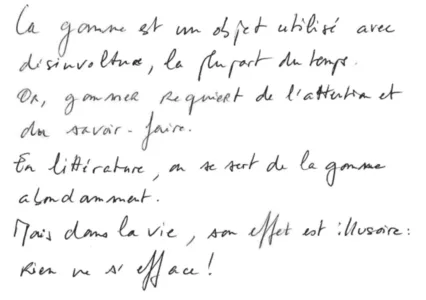 La gomme est un objet utilisé avec
désinvolture, la plupart du temps.
Or, gommer requiert de l'attention et
du savoir-faire.
En littérature, on se sert de la gomme
abondamment.
Mais dans la vie, son effet est illusoire :
Rien ne s'efface !